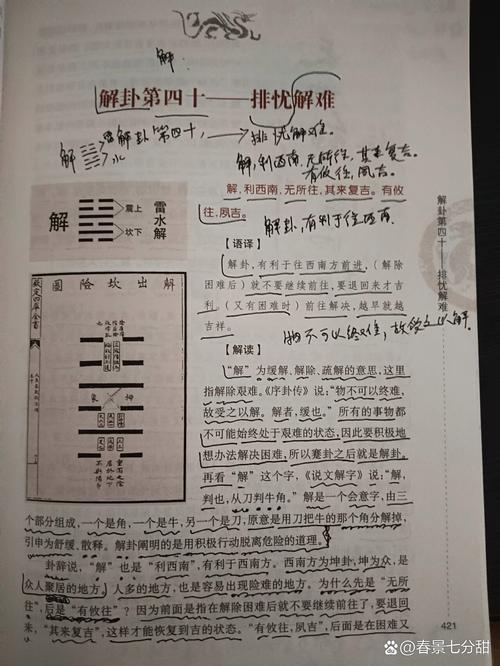 解
解卦第四十——排忧解难
雷解卦第四十,→排忧解难。
解 水
解,利西南,无所往,其来复吉。
有攸往,夙吉。
解
震上
坎下
雷
水
解
解,利西南,无所往,其来复吉。有攸
往,夙吉。
解卦,有利于往西南
【语译】
解卦,有利于往西南方前进,(解除
困难后)就不要继续前往,要退回来才吉
利。(又有困难时)前往解决,越早就越
吉祥。
物不可以终难,故受之以解
【解读】
“解”为缓解、解除、疏解的意思,这里
指解除艰难。《序卦传》说;“物不可以终难,
故受之以解。解者,缓也。”所有的事物都
不可能始终处于艰难的状态,因此要积极地
想办法解决困难,所以蹇卦之后就是解卦。
再看“解”这个字,《说文解字》说;“解,
判也,从刀判牛角。”解是一个会意字,由三
个部分组成,一个是角,一个是牛,另一个是刀,原意是用刀把牛的那个角分解掉,
引申为舒缓、散释。解卦阐明的是用积极行动脱离危险的道理。
卦辞说,“解”也是“利西南”,有利于西南方。西南方为坤卦,坤为众,是
众人聚居的地方,人多的地方,也是容易出现险难的地方。为什么先是“无所
往”,后是“有攸往”?因为前面是指在解除困难后就不要继续前往了,要退回
来,“其来复吉”,这样才能恢复到吉的状态。“有攸往,夙吉”,后面是在困难又
圖險坎出解
欽定四庫全書
解卦第四十——排忧解难
421
@春景七分甜